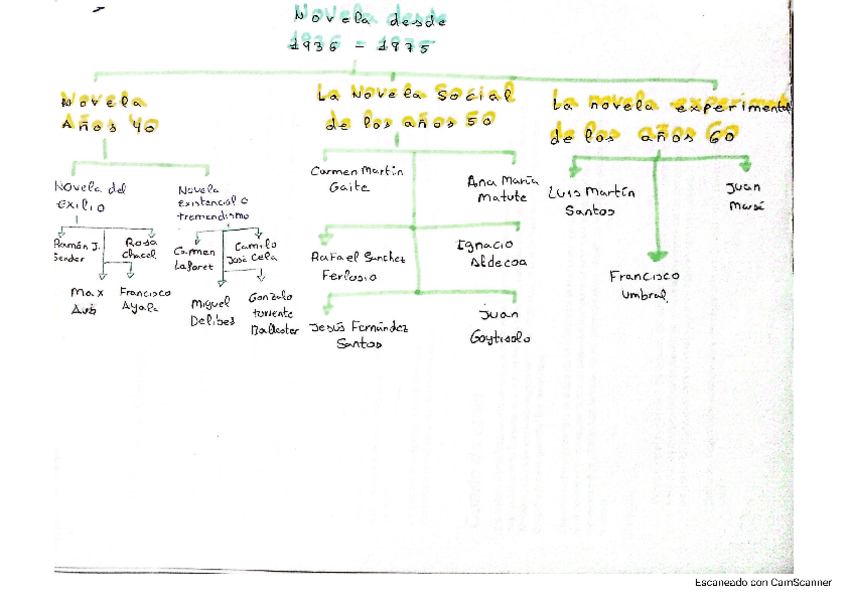 Novela desde
1936 - 1975
Novela
Años 40
La Novela Social
de los años 50
La novela experimental
de los años 60
Novela del
exilio
Novela
existencial o
tremendismo
Ramón J.
Sender
Rosa
Chacel
Max
Aub
Francisco
Ayala
Carmen
Laforet
Camilo
José Cela
Miguel
Delibes
Gonzalo
Torrente
Ballester
Carmen Martín
Gaite
Ana María
Matute
Rafael Sanchez
Ferlosio
Ignacio
Aldecoa
Jesús Fernández
Santos
Juan
Goytisolo
Luis Martín
Santos
Juan
Marsé
Francisco
Umbral
Escaneado con CamScanner